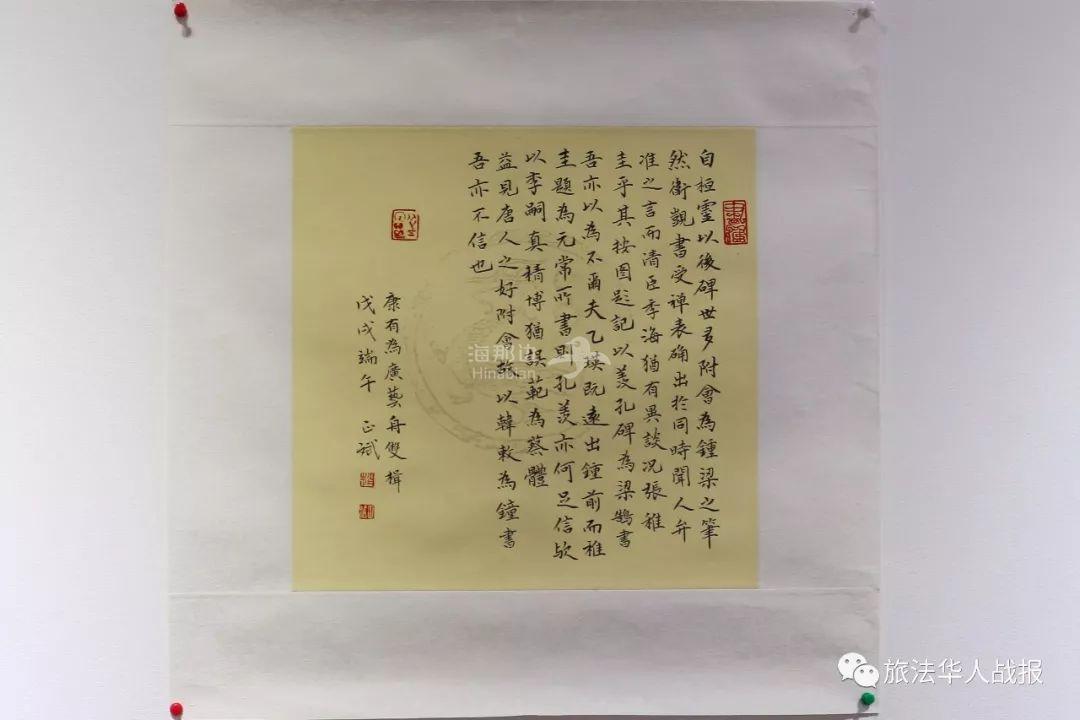 自桓靈以後碑世多附會為鍾梁之筆
然衛覬書受禅表确出於同時聞人弁
准之言而清臣季海猶有異談况張稚
圭乎其按图题記以羑孔碑為梁鵠書
吾亦以為不爾夫乙瑛既遠出鍾前而稚
圭題為元常所書則孔羡亦何足信欤
以李嗣真精博猶誤範為蔡體
益見唐人之好附會故以韓敕為鐘書
吾亦不信也
康有為廣藝舟雙楫
戊戌端午 正斌
海那边
Hinabian
旅法华人战报